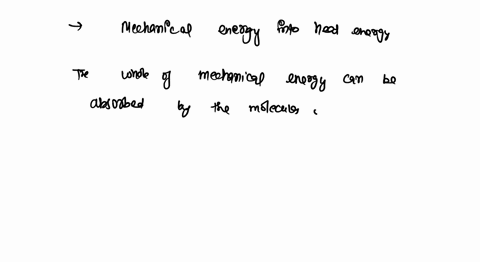 → Mechanical energy into heat energy
The whole of mechanical energy can be
absorbed by the molecules